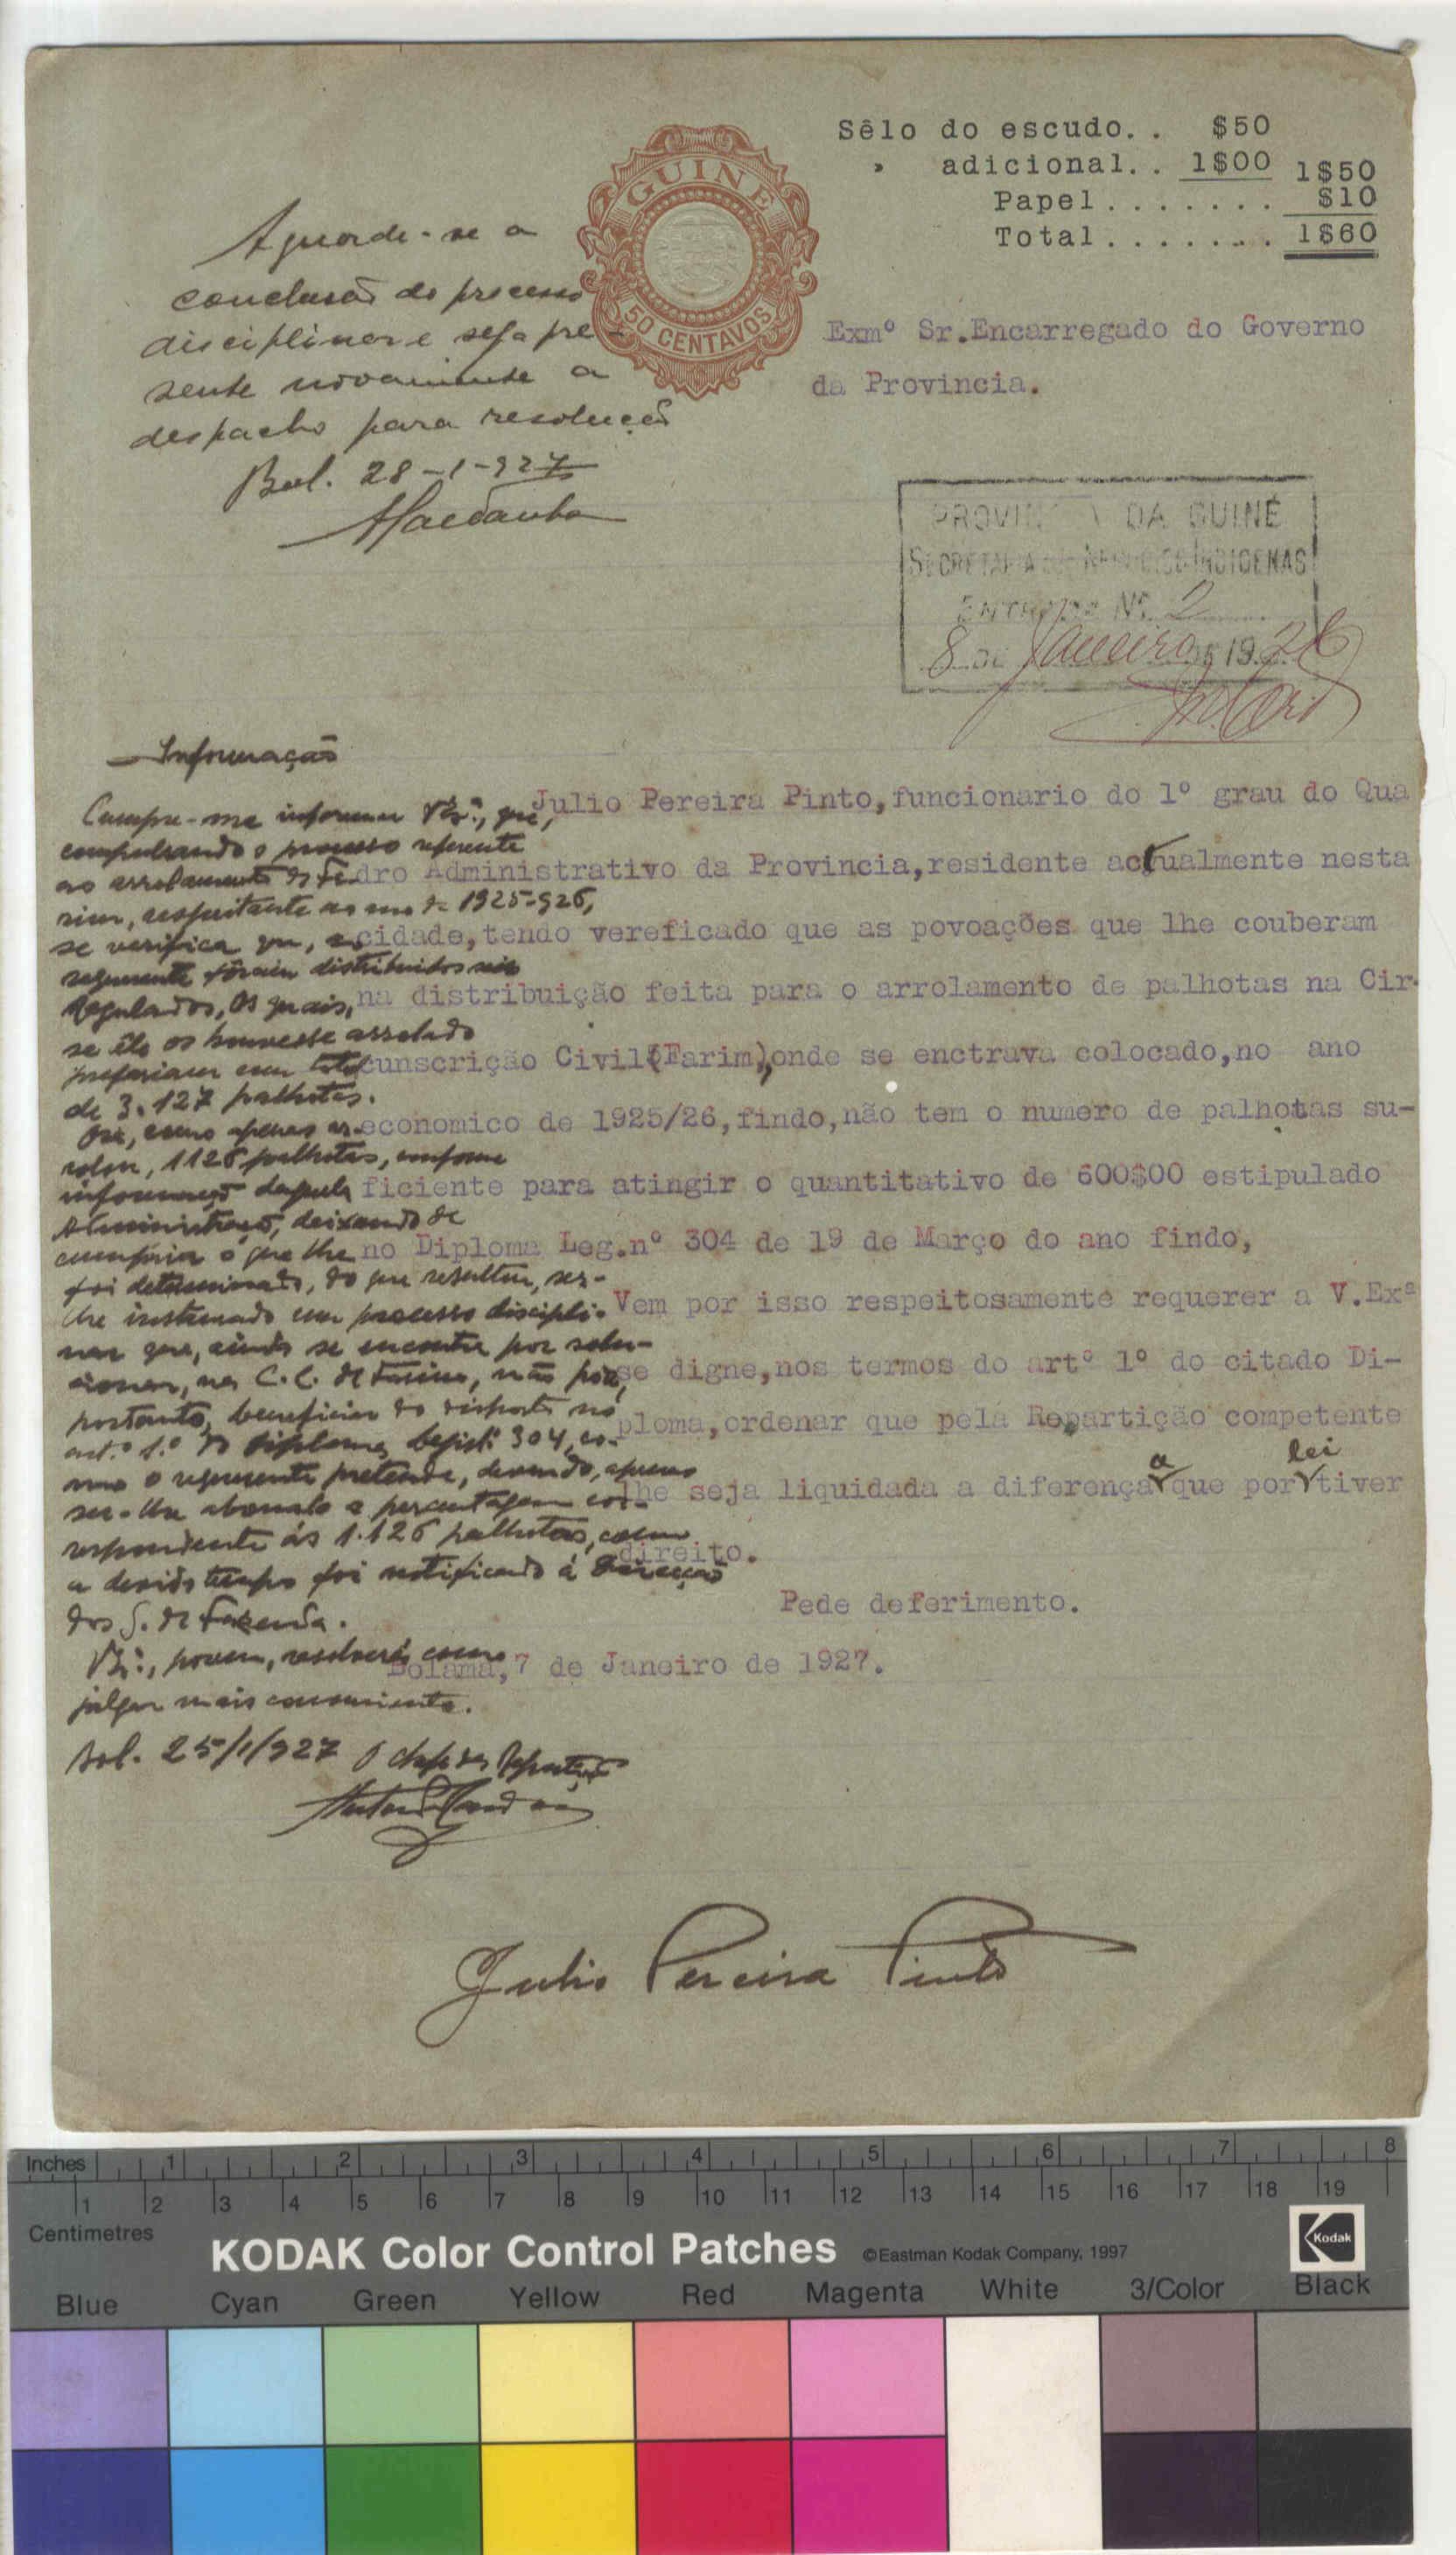 Sêlo do escudo. . $50
» adicional. . 1$00 1$50
Papel . . . . . . . $10
Total . . . . . . . 1$60
GUINÉ
50 CENTAVOS
Aguarde-se a
conclusão do processo
disciplinar e seja pre-
sente novamente a
despacho para resolução
Bol. 28-1-927
Exmº Sr.Encarregado do Governo
da Provincia.
PROVINCIA DA GUINÉ
SECRETARIA DOS NEGOCIOS INDIGENAS
ENTRADA Nº 2
8 DE Janeiro DE 1926
Informação
Cumpre-me informar V.Exª, que,
compulsando o processo referente
ao arrolamento de Fa-
rim, respeitante ao ano de 1925-926,
se verifica que, ao
requerente fôram distribuidos seis
Regulados, os quais,
se êle os houvesse arrolado
prefaziam um total
de 3.127 palhotas.
Ora, como apenas ar-
rolou, 1126 palhotas, conforme
informação daquela
Administração, deixando de
cumprir o que lhe
foi determinado, do que resultou, ser-
lhe instaurado um processo discipli-
nar que, ainda se encontra por solu-
cionar, na C.C. de Farim, não póde,
portanto, beneficiar do disposto no
art.º 1.º do diploma legisl. 304, co-
mo o requerente pretende, devendo, apenas
ser-lhe abonado a percentagem cor-
respondente ás 1.126 palhotas, como
a devido tempo foi notificado á Direcção
dos S. de Fazenda.
V.Exª, porem, resolverá como
julgar mais conveniente.
Bol. 25/1/927 O chefe da Repartição
Julio Pereira Pinto,funcionario do 1º grau do Qua
dro Administrativo da Provincia,residente actualmente nesta
cidade,tendo vereficado que as povoações que lhe couberam
na distribuição feita para o arrolamento de palhotas na Cir-
cunscrição Civil(Farim),onde se enctrava colocado,no ano
economico de 1925/26,findo,não tem o numero de palhotas su-
ficiente para atingir o quantitativo de 600$00 estipulado
no Diploma Leg.nº 304 de 19 de Março do ano findo,
Vem por isso respeitosamente requerer a V.Exª
se digne,nos termos do artº 1º do citado Di-
ploma,ordenar que pela Repartição competente
lhe seja liquidada a diferença a que por lei tiver
direito.
Pede deferimento.
Bolama,7 de Janeiro de 1927.
Julio Pereira Pinto
Inches 1 2 3 4 5 6 7 8
1 2 3 4 5 6 7 8 9 10 11 12 13 14 15 16 17 18 19
Centimetres
KODAK Color Control Patches ©Eastman Kodak Company, 1997 Kodak
Blue Cyan Green Yellow Red Magenta White 3/Color Black